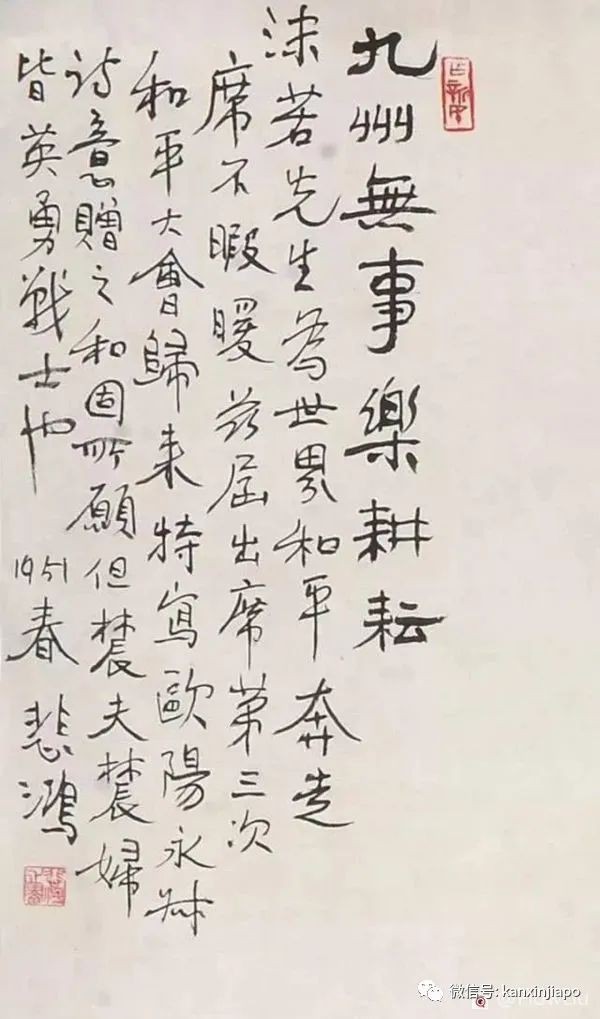 九州無事樂耕耘
沫若先生為世界和平奔走
席不暇暖茲屆出席第三次
和平大會歸来特寫歐陽永叔
诗意贈之和固所願但辳夫辳婦
皆英勇戰士也 1951春 悲鴻
微信号: kanxinjiapo